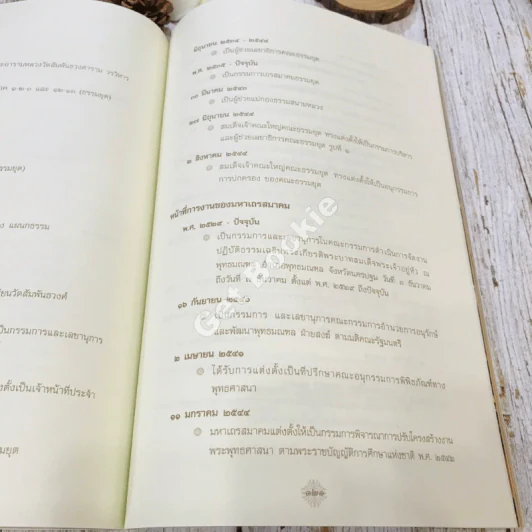 ะอารามหลวงวัดสัมพันธวงศาราม วรวิหาร
แผนกธรรม
วัดสัมพันธวงศ์
เป็นกรรมการและเลขานุการ
ตั้งเป็นเจ้าหน้าที่ประจำ
มิถุนายน ๒๕๓๔ - ๒๕๔๔
เป็นผู้ช่วยเลขาธิการคณะธรรมยุต
- ปัจจุบัน
เป็นกรรมการเถรสมาคมธรรมยุต
มีนาคม ๒๕๔๐
เป็นผู้ช่วยแม่กองธรรมสนามหลวง
มิถุนายน ๒๕๔๔
สมเด็จเจ้าคณะใหญ่คณะธรรมยุต ทรงแต่งตั้งให้เป็นกรรมการบริหาร
และผู้ช่วยเลขาธิการคณะธรรมยุต รูปที่ ๑
๒ สิงหาคม ๒๕๔๔
สมเด็จเจ้าคณะใหญ่คณะธรรมยุต ทรงแต่งตั้งให้เป็นอนุกรรมการ
การปกครอง ของคณะธรรมยุต
หน้าที่การงานของมหาเถรสมาคม
พ.ศ. ๒๕๒๔ - ปัจจุบัน
เป็นกรรมการและเลขานุการในคณะกรรมการดำเนินการจัดงาน
ปฏิบัติธรรมเฉลิมพระเกียรติพระบาทสมเด็จพระเจ้าอยู่หัว ณ
พุทธมณฑล อำเภอพุทธมณฑล จังหวัดนครปฐม วันที่ ๓ ธันวาคม
ถึงวันที่ ธันวาคม ตั้งแต่ พ.ศ. ๒๕๒๔ ถึงปัจจุบัน
๑๖ กันยายน
เป็นกรรมการ และเลขานุการคณะกรรมการอำนวยการอนุรักษ์
และพัฒนาพุทธมณฑล ฝ่ายสงฆ์ ตามมติคณะรัฐมนตรี
๒ เมษายน ๒๕๔๑
ได้รับการแต่งตั้งเป็นที่ปรึกษาคณะอนุกรรมการพิพิธภัณฑ์ทาง
พุทธศาสนา
๑๑ มกราคม ๒๕๔๔
มหาเถรสมาคมแต่งตั้งให้เป็นกรรมการพิจารณาการปรับโครงสร้างงาน
พระพุทธศาสนา ตามพระราชบัญญัติการศึกษาแห่งชาติ พ.ศ. ๒๕๔๒
Get Bookie